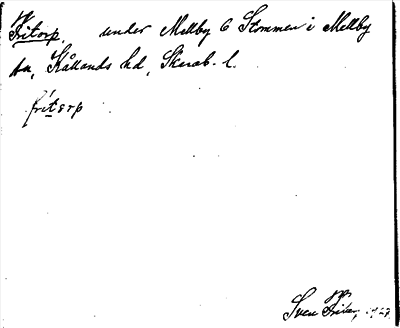 Fritorp. under Mellby 6 Stommen i Mellby
sn, Kållands hd, Skarab. l.
fritsrp
Sven 1927